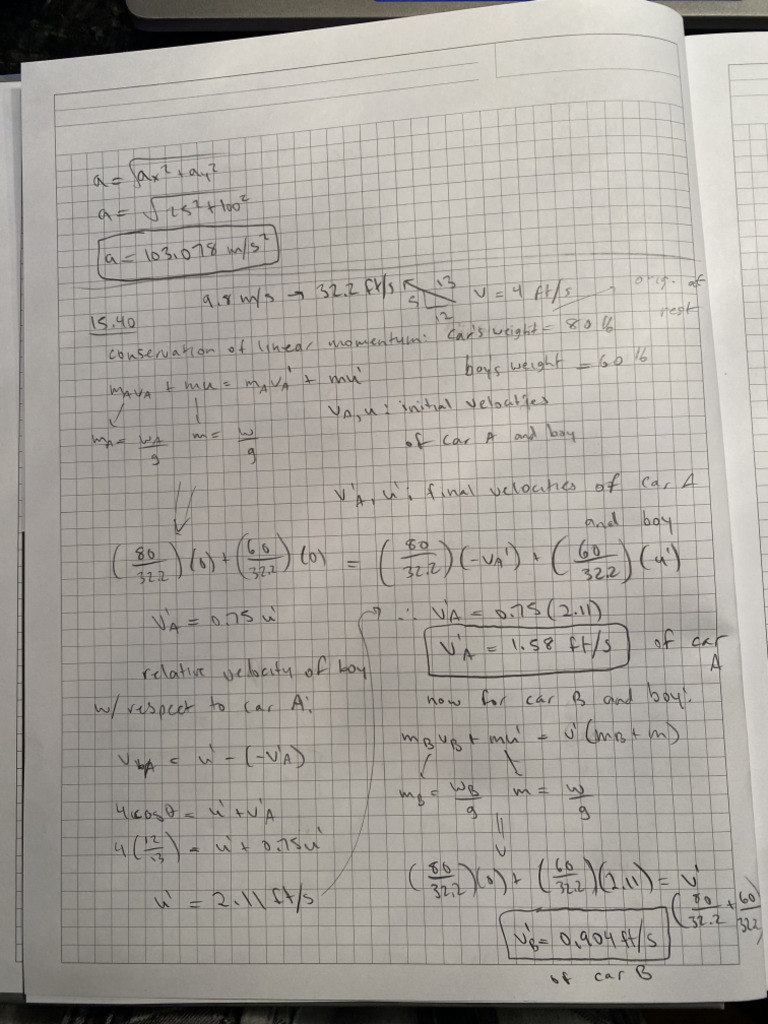 a = √ax² + ay²
a = √25² + 100²
a = 103.078 m/s²
9.8 m/s → 32.2 ft/s 5 13 12 v = 4 ft/s orig. at rest
15.40
conservation of linear momentum: car's weight = 80 lb
boys weight = 60 lb
mAvA + mu = mAvA' + mu'
vA, u : initial velocities
of car A and boy
mA = wA/g m = w/g
v'A, u' : final velocities of car A
and boy
(80/32.2)(0) + (60/32.2)(0) = (80/32.2)(-vA') + (60/32.2)(u')
v'A = 0.75 u'
∴ v'A = 0.75(2.11)
v'A = 1.58 ft/s of car A
relative velocity of boy
w/ respect to car A:
v = u' - (-v'A)
4cosθ = u' + v'A
4(12/13) = u' + 0.75u'
u' = 2.11 ft/s
now for car B and boy:
mBvB + mu' = v'(mB + m)
mB = wB/g m = w/g
(80/32.2)(0) + (60/32.2)(2.11) = v'
(80/32.2 + 60/322)
v'B = 0.904 ft/s
of car B